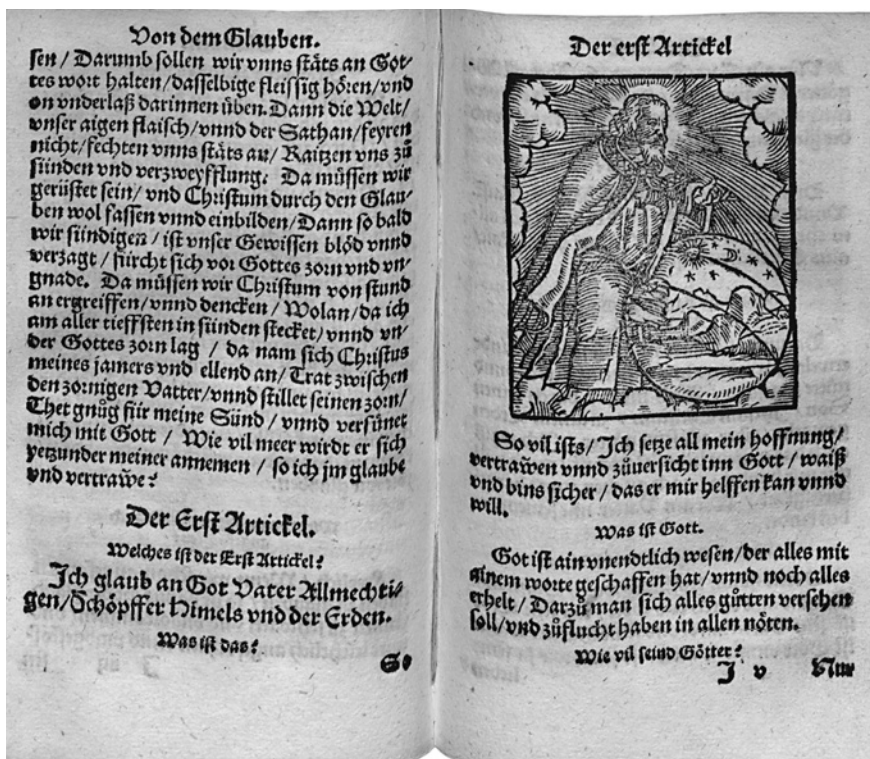 Von dem Glauben.
sen / Darumb sollen wir vnns stäts an Got⸗
tes wort halten / dasselbige fleissig hören / vnd
on vnderlaß darinnen üben. Dann die Welt /
vnser aigen flaisch / vnnd der Sathan / feyren
nicht / fechten vnns stäts an / Raitzen vns zů
sünden vnd verzweyfflung. Da müssen wir
gerüstet sein / vnd Christum durch den Glau⸗
ben wol fassen vnnd einbilden / Dann so bald
wir sündigen / ist vnser Gewissen blöd vnnd
verzagt / fürcht sich vor Gottes zorn vnd vn⸗
gnade. Da müssen wir Christum von stund
an ergreiffen / vnnd dencken / Wolan / da ich
am aller tieffsten in sünden stecket / vnnd vn⸗
der Gottes zorn lag / da nam sich Christus
meines jamers vnd ellend an / Trat zwischen
den zornigen Vatter / vnnd stillet seinen zorn /
Thet gnůg für meine Sünd / vnnd versünet
mich mit Gott / Wie vil meer wirdt er sich
yetzunder meiner annemen / so ich jm glaube
vnd vertrawe?
Der Erst Artickel.
Welches ist der Erst Artickel?
Ich glaub an Got Vater Allmechti⸗
gen / Schöpffer Himels vnd der Erden.
Was ist das?
So
Der erst Artickel
So vil ists / Ich setze all mein hoffnung /
vertrawen vnnd zůuersicht inn Gott / waiß
vnd bins sicher / das er mir helffen kan vnnd
will.
Was ist Gott.
Got ist ain vnendtlich wesen / der alles mit
einem worte geschaffen hat / vnnd noch alles
erhelt / Darzů man sich alles gůtten versehen
soll / vnd zůflucht haben in allen nöten.
Wie vil seind Götter?
J v Nur